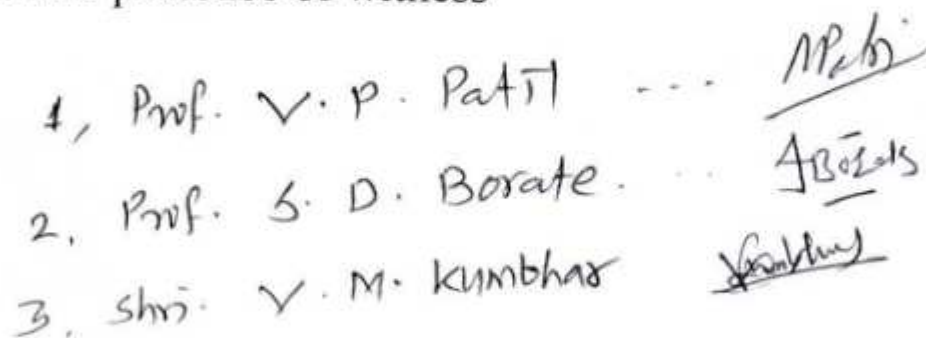 witness
1, Prof. V. P. Patil ...
2. Prof. S. D. Borate. ..
3. Shri. V. M. Kumbhar